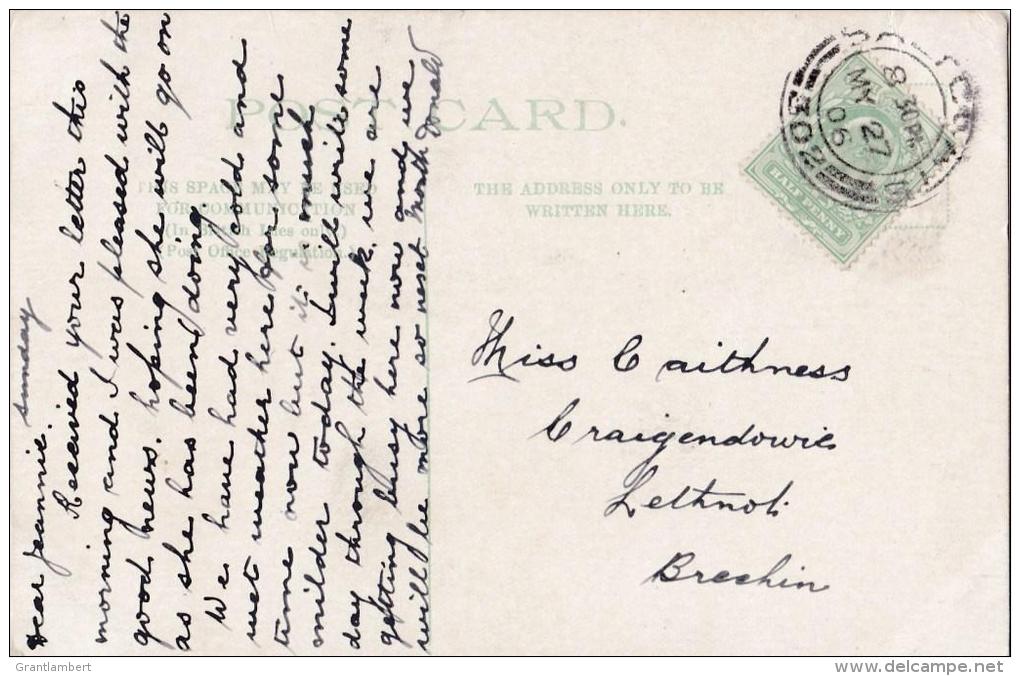 Sunday
Dear Jeannie.
Received your letter this
morning and I was pleased with the
good news. hoping she will go on
as she has been doing.
We have had very cold and
wet weather here for some
time now but it is much
milder today. I will write some
day through the week. we are
getting busy here now and we
will be more so next month Donald
POST CARD.
THIS SPACE MAY BE USED
FOR COMMUNICATION
(In British Isles only.)
(Post Office Regulation.)
THE ADDRESS ONLY TO BE
WRITTEN HERE.
HALF PENNY
8 30PM
MY 27
06
Miss Caithness
Craigendowie
Lethnot
Brechin
Grantlambert
delcampe.net